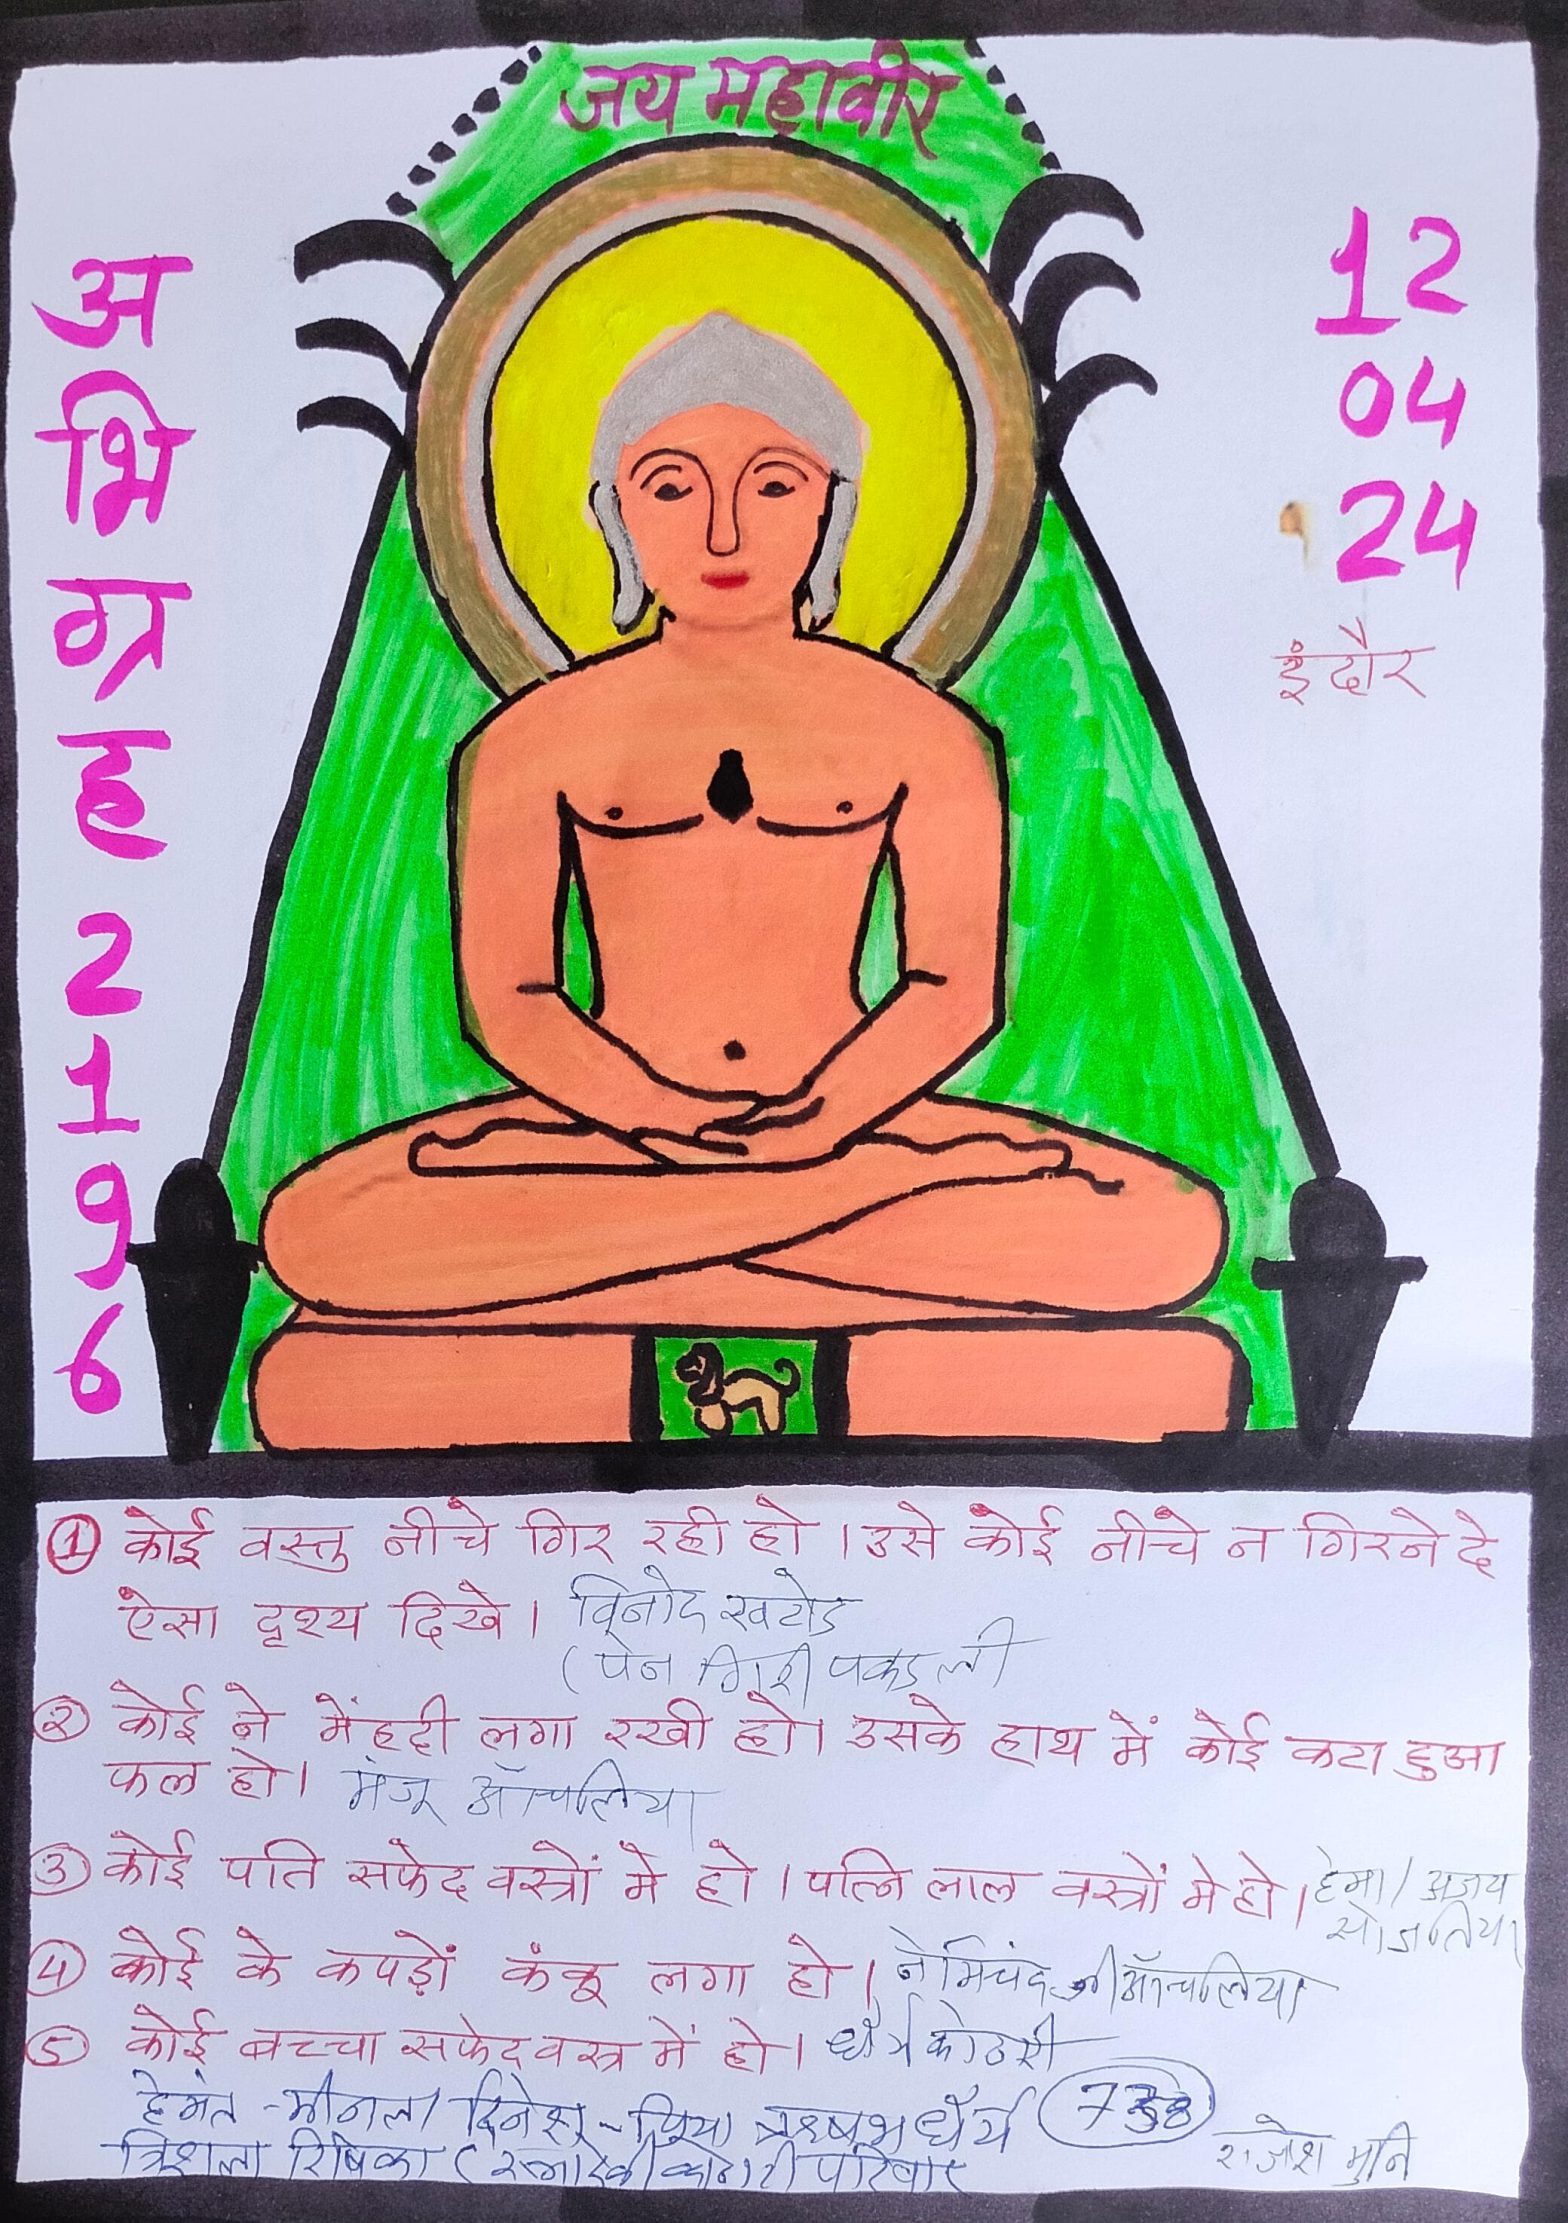 जय महावीर
अभिग्रह 2196
12
04
24
इंदौर
① कोई वस्तु नीचे गिर रही हो। उसे कोई नीचे न गिरने दे
ऐसा दृश्य दिखे। विनोद खटोड
(पेन गिरी पकड ली
② कोई ने मेंहदी लगा रखी हो। उसके हाथ में कोई कटा हुआ
फल हो। मंजू ऑचलिया
③ कोई पति सफेद वस्त्रों मे हो। पत्नि लाल वस्त्रों मे हो। हेमा/अजय
सोजतिया
④ कोई के कपड़ों कंकू लगा हो। नेमिचंद जी ऑचलिया
⑤ कोई बच्चा सफेद वस्त्र में हो। धैर्य कोठारी
हेमंत - मीनल/ दिनेश - प्रिया ऋषभ धैर्य 738
त्रिशला रिषिका ( परिवार
राजेश मुनि